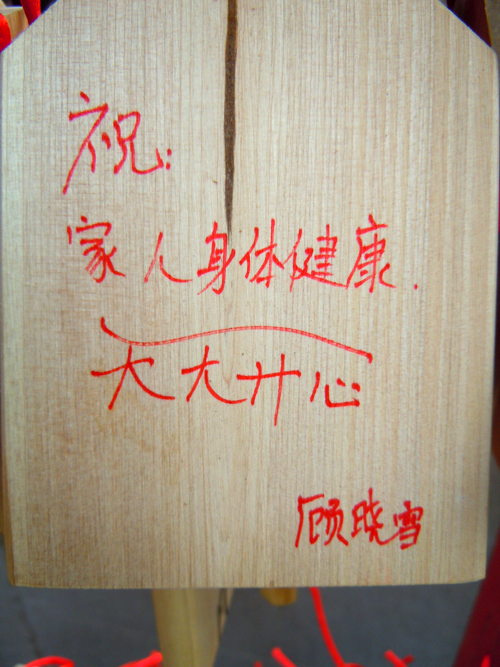 祝:
家人身体健康.
天天开心
顾晓雪